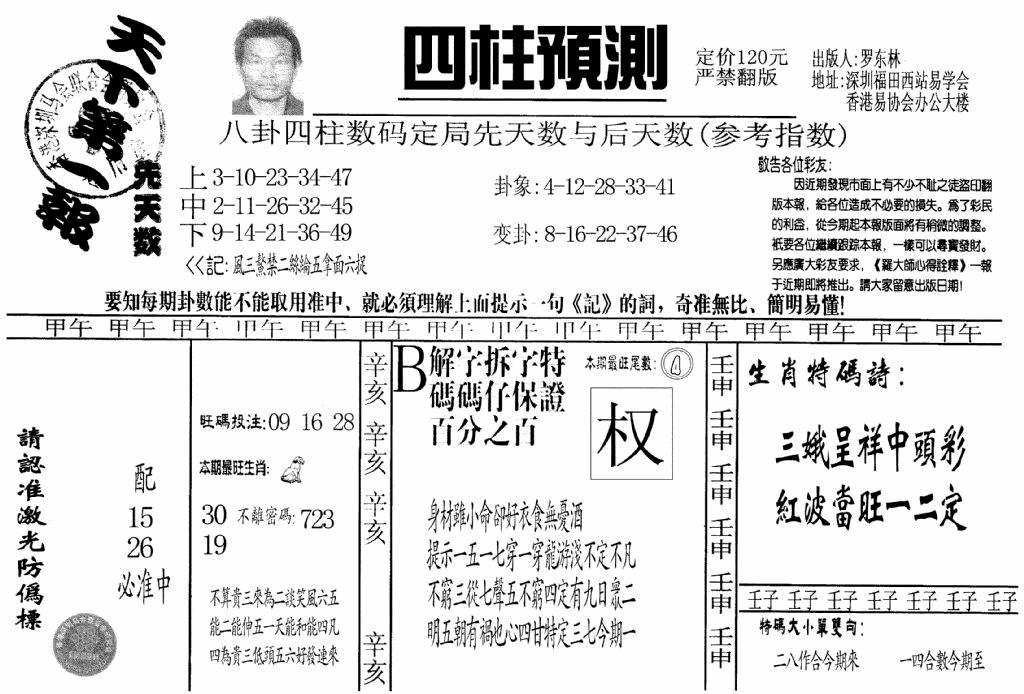 天下第一報
先天数
四柱預測
定价120元
严禁翻版
出版人:罗东林
地址:深圳福田西站易学会
香港易协会办公大楼
八卦四柱数码定局先天数与后天数(参考指数)
上 3-10-23-34-47
中 2-11-26-32-45
下 9-14-21-36-49
<<記:風三鰲禁二綠綸五拿面六捉
卦象:4-12-28-33-41
变卦:8-16-22-37-46
敬告各位彩友:
因近期發現市面上有不少不耻之徒盜印翻
版本報,給各位造成不必要的損失。爲了彩民
的利益,從今期起本報版面將有稍微的調整。
衹要各位繼續跟踪本報,一樣可以尋寶發財。
另應廣大彩友要求,《羅大師心得詮釋》一報
于近期即將推出。請大家留意出版日期!
要知每期卦數能不能取用准中、就必須理解上面提示一句《記》的詞,奇准無比、簡明易懂!
甲午 甲午 甲午 甲午 甲午 甲午 甲午 甲午 甲午 甲午 甲午 甲午 甲午 甲午 甲午
請認准激光防僞標
配
15
26
必准中
旺碼投注:09 16 28
本期最旺生肖:
30 不離密碼:723
19
不算貴三來為二談笑風六五
能二能伸五一天能和能四凡
四為貴三低頭五六好發連來
辛亥 辛亥 辛亥 辛亥
B解字拆字特
碼碼仔保證
百分之百
本期最旺尾數:
权
身材雖小命卻好衣食無憂酒
提示一五一七穿一穿龍游淺不定不凡
不窮三從七聲五不窮四定有九日眾二
明五朝有禍也心四甘特定三七今期一
壬申 壬申 壬申 壬申 壬申 壬申
生肖特碼詩:
三娥呈祥中頭彩
紅波當旺一二定
壬子 壬子 壬子 壬子 壬子 壬子 壬子
特碼大小單雙句:
二八作合今期來 一四合數今期至